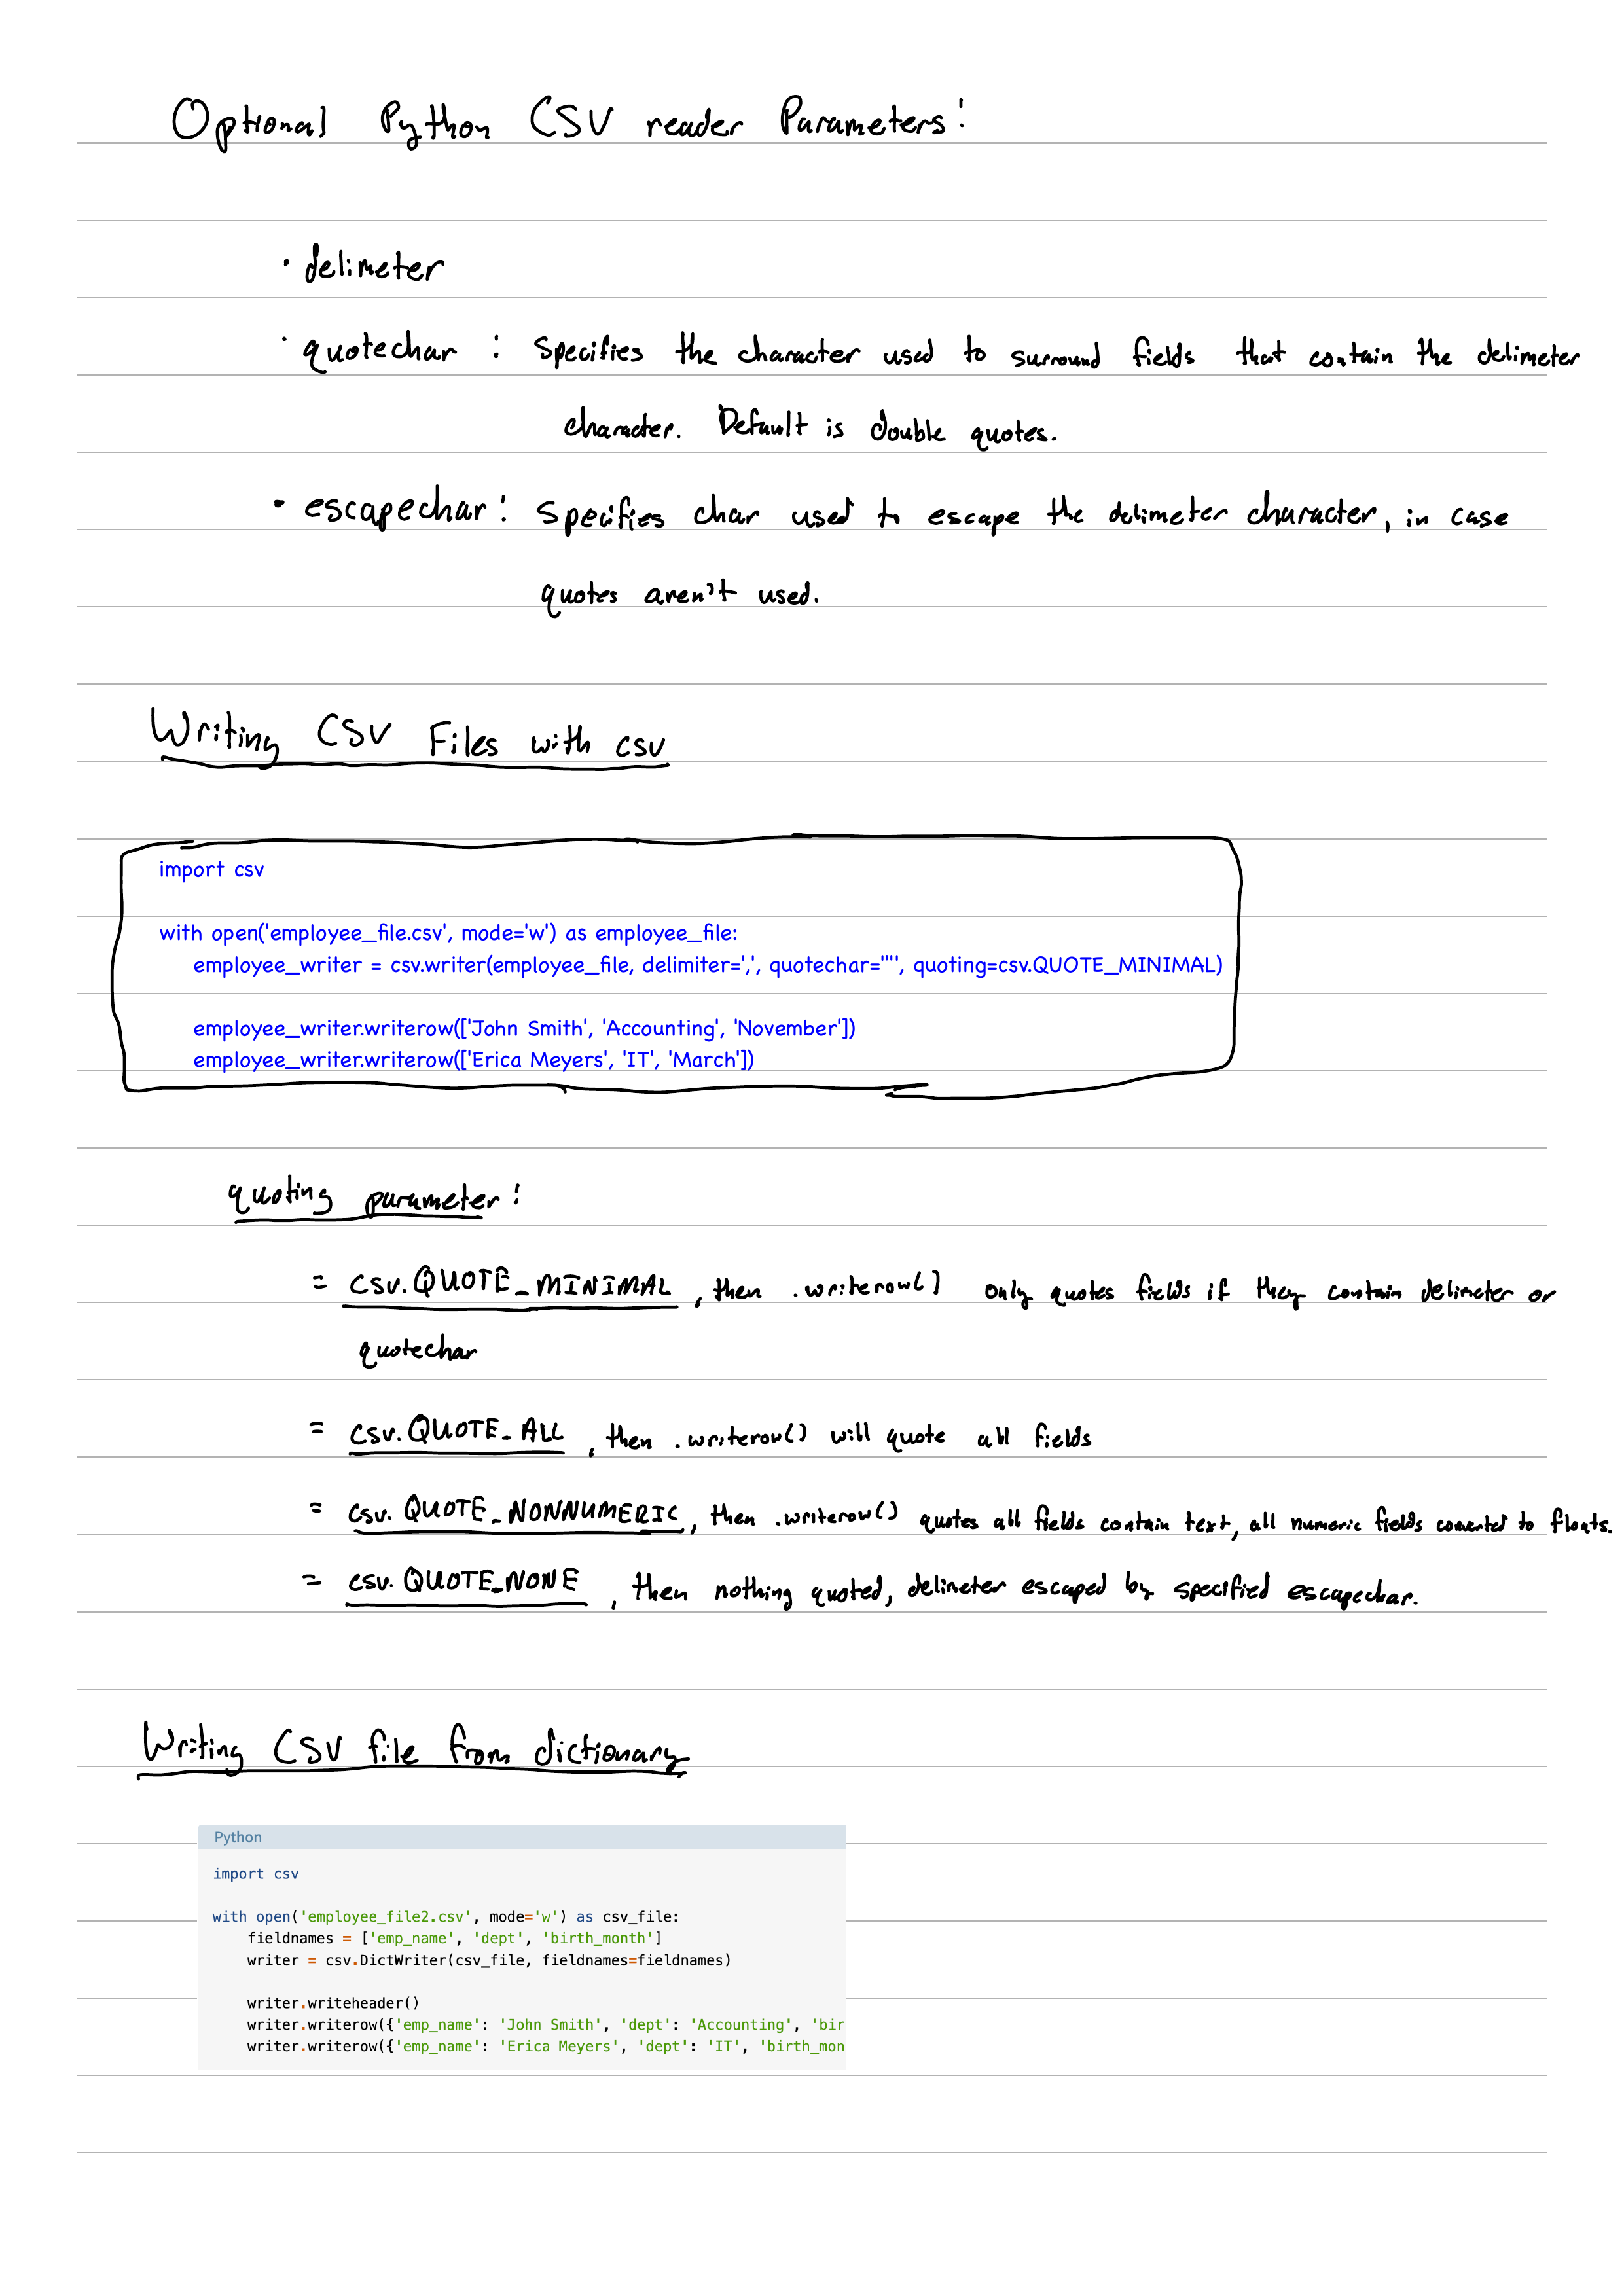 Optional Python CSV reader Parameters:
• delimeter
• quotechar : specifies the character used to surround fields that contain the delimeter
character. Default is double quotes.
• escapechar: specifies char used to escape the delimeter character, in case
quotes aren't used.
Writing CSV Files with csv
import csv
with open('employee_file.csv', mode='w') as employee_file:
employee_writer = csv.writer(employee_file, delimiter=',', quotechar='"', quoting=csv.QUOTE_MINIMAL)
employee_writer.writerow(['John Smith', 'Accounting', 'November'])
employee_writer.writerow(['Erica Meyers', 'IT', 'March'])
quoting parameter:
= csv.QUOTE_MINIMAL, then .writerow() only quotes fields if they contain delimeter or
quotechar
= csv.QUOTE_ALL, then .writerow() will quote all fields
= csv.QUOTE_NONNUMERIC, then .writerow() quotes all fields contain text, all numeric fields converted to floats.
= csv.QUOTE_NONE, then nothing quoted, delimeter escaped by specified escapechar.
Writing CSV file from dictionary
Python
import csv
with open('employee_file2.csv', mode='w') as csv_file:
fieldnames = ['emp_name', 'dept', 'birth_month']
writer = csv.DictWriter(csv_file, fieldnames=fieldnames)
writer.writeheader()
writer.writerow({'emp_name': 'John Smith', 'dept': 'Accounting', 'bir
writer.writerow({'emp_name': 'Erica Meyers', 'dept': 'IT', 'birth_mon